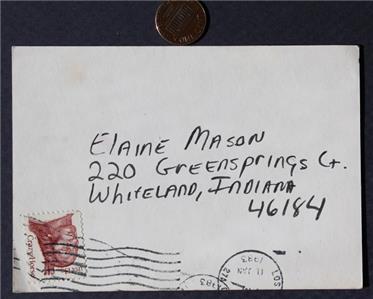 Elaine Mason
220 Greensprings Ct.
Whiteland, Indiana
46184
LOS
11 JAN
1993